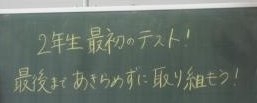 2年生最初のテスト!
最後まであきらめずに取り組もう!